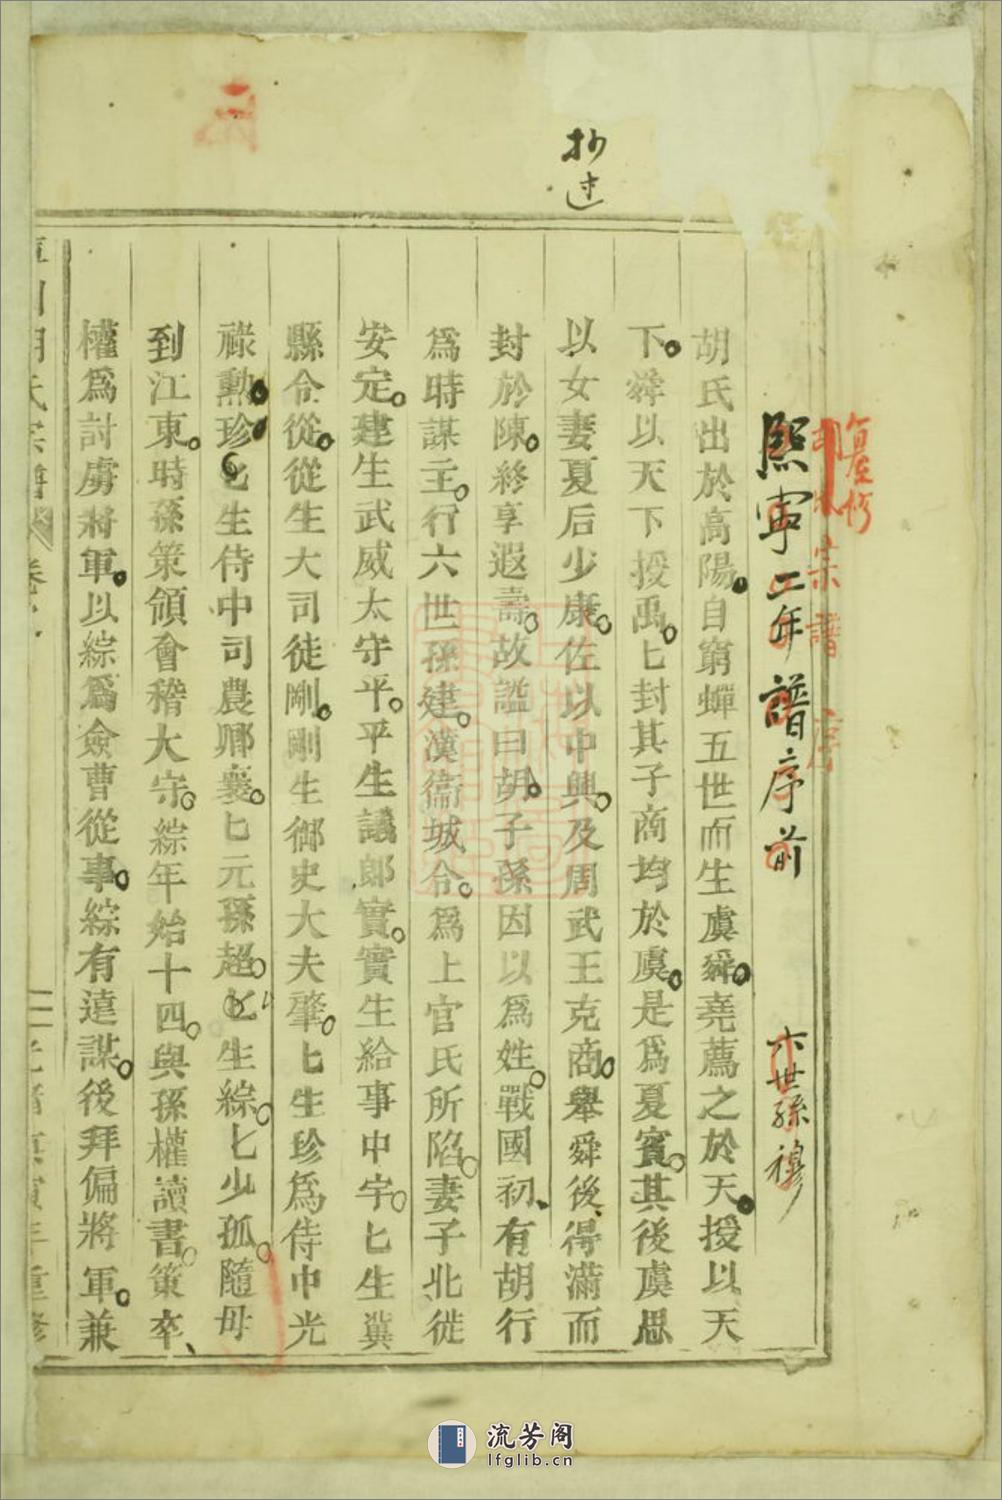 抄过
复左修
宗譜序
熙寧二年譜序前
六世孫穆
胡氏出於高陽自窮蟬五世而生虞舜堯薦之於天授以天
下舜以天下授禹匕封其子商均於虞是爲夏賓其後虞思
以女妻夏后少康佐以中興及周武王克商舉舜後得滿而
封於陳終享遐壽故謚曰胡子孫因以爲姓戰國初有胡行
爲時謀主行六世孫建漢衞城令爲上官氏所陷妻子北徙
安定建生武威太守平平生議郎實實生給事中宇匕生冀
縣令從從生大司徒剛剛生御史大夫肇匕生珍爲侍中光
祿勳珍匕生侍中司農卿襄匕元孫超匕生綜匕少孤隨母
到江東時孫策領會稽大守綜年始十四與孫權讀書策卒
權爲討虜將軍以綜爲僉曹從事綜有遠謀後拜偏將軍兼
氏宗譜 卷
流芳阁
lfglib.cn